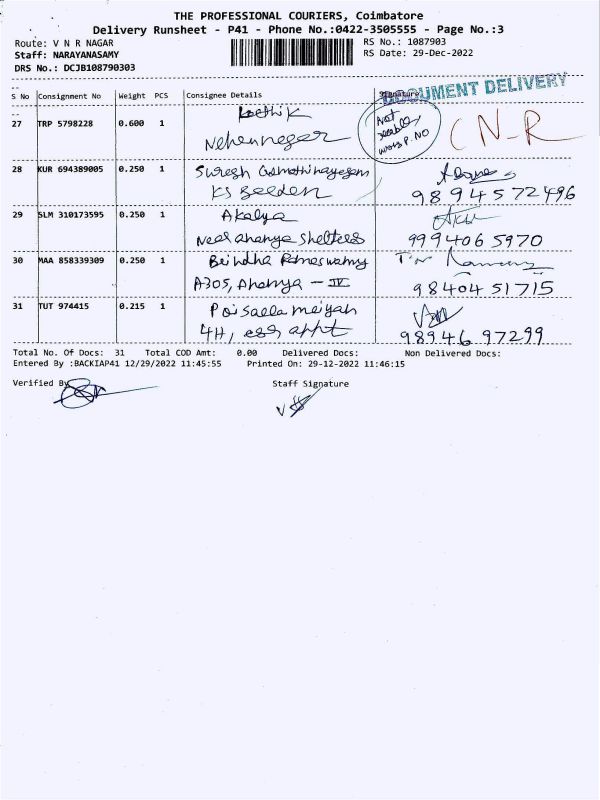 THE PROFESSIONAL COURIERS, Coimbatore
Delivery Runsheet - P41 - Phone No.:0422-3505555 - Page No.:3
Route: V N R NAGAR RS No.: 1087903
Staff: NARAYANASAMY RS Date: 29-Dec-2022
DRS No.: DCJB108790303
DOCUMENT DELIVERY
S No Consignment No Weight PCS Consignee Details Signature
27 TRP 5798228 0.600 1 Not P. NO C N-R
28 KUR 694389005 0.250 1 Suresh
KS 9894572496
29 SLM 310173595 0.250 1 Akalya
Near ananya shelters 9994065970
30 MAA 858339309 0.250 1 Brindha
A305, Ananya - IV 9840451715
31 TUT 974415 0.215 1
4H, appt 9894697299
Total No. Of Docs: 31 Total COD Amt: 0.00 Delivered Docs: Non Delivered Docs:
Entered By :BACKIAP41 12/29/2022 11:45:55 Printed On: 29-12-2022 11:46:15
Verified By Staff Signature